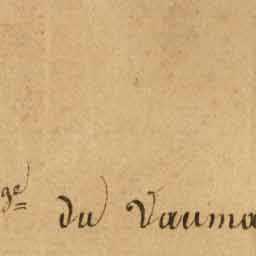 ge du Vauma